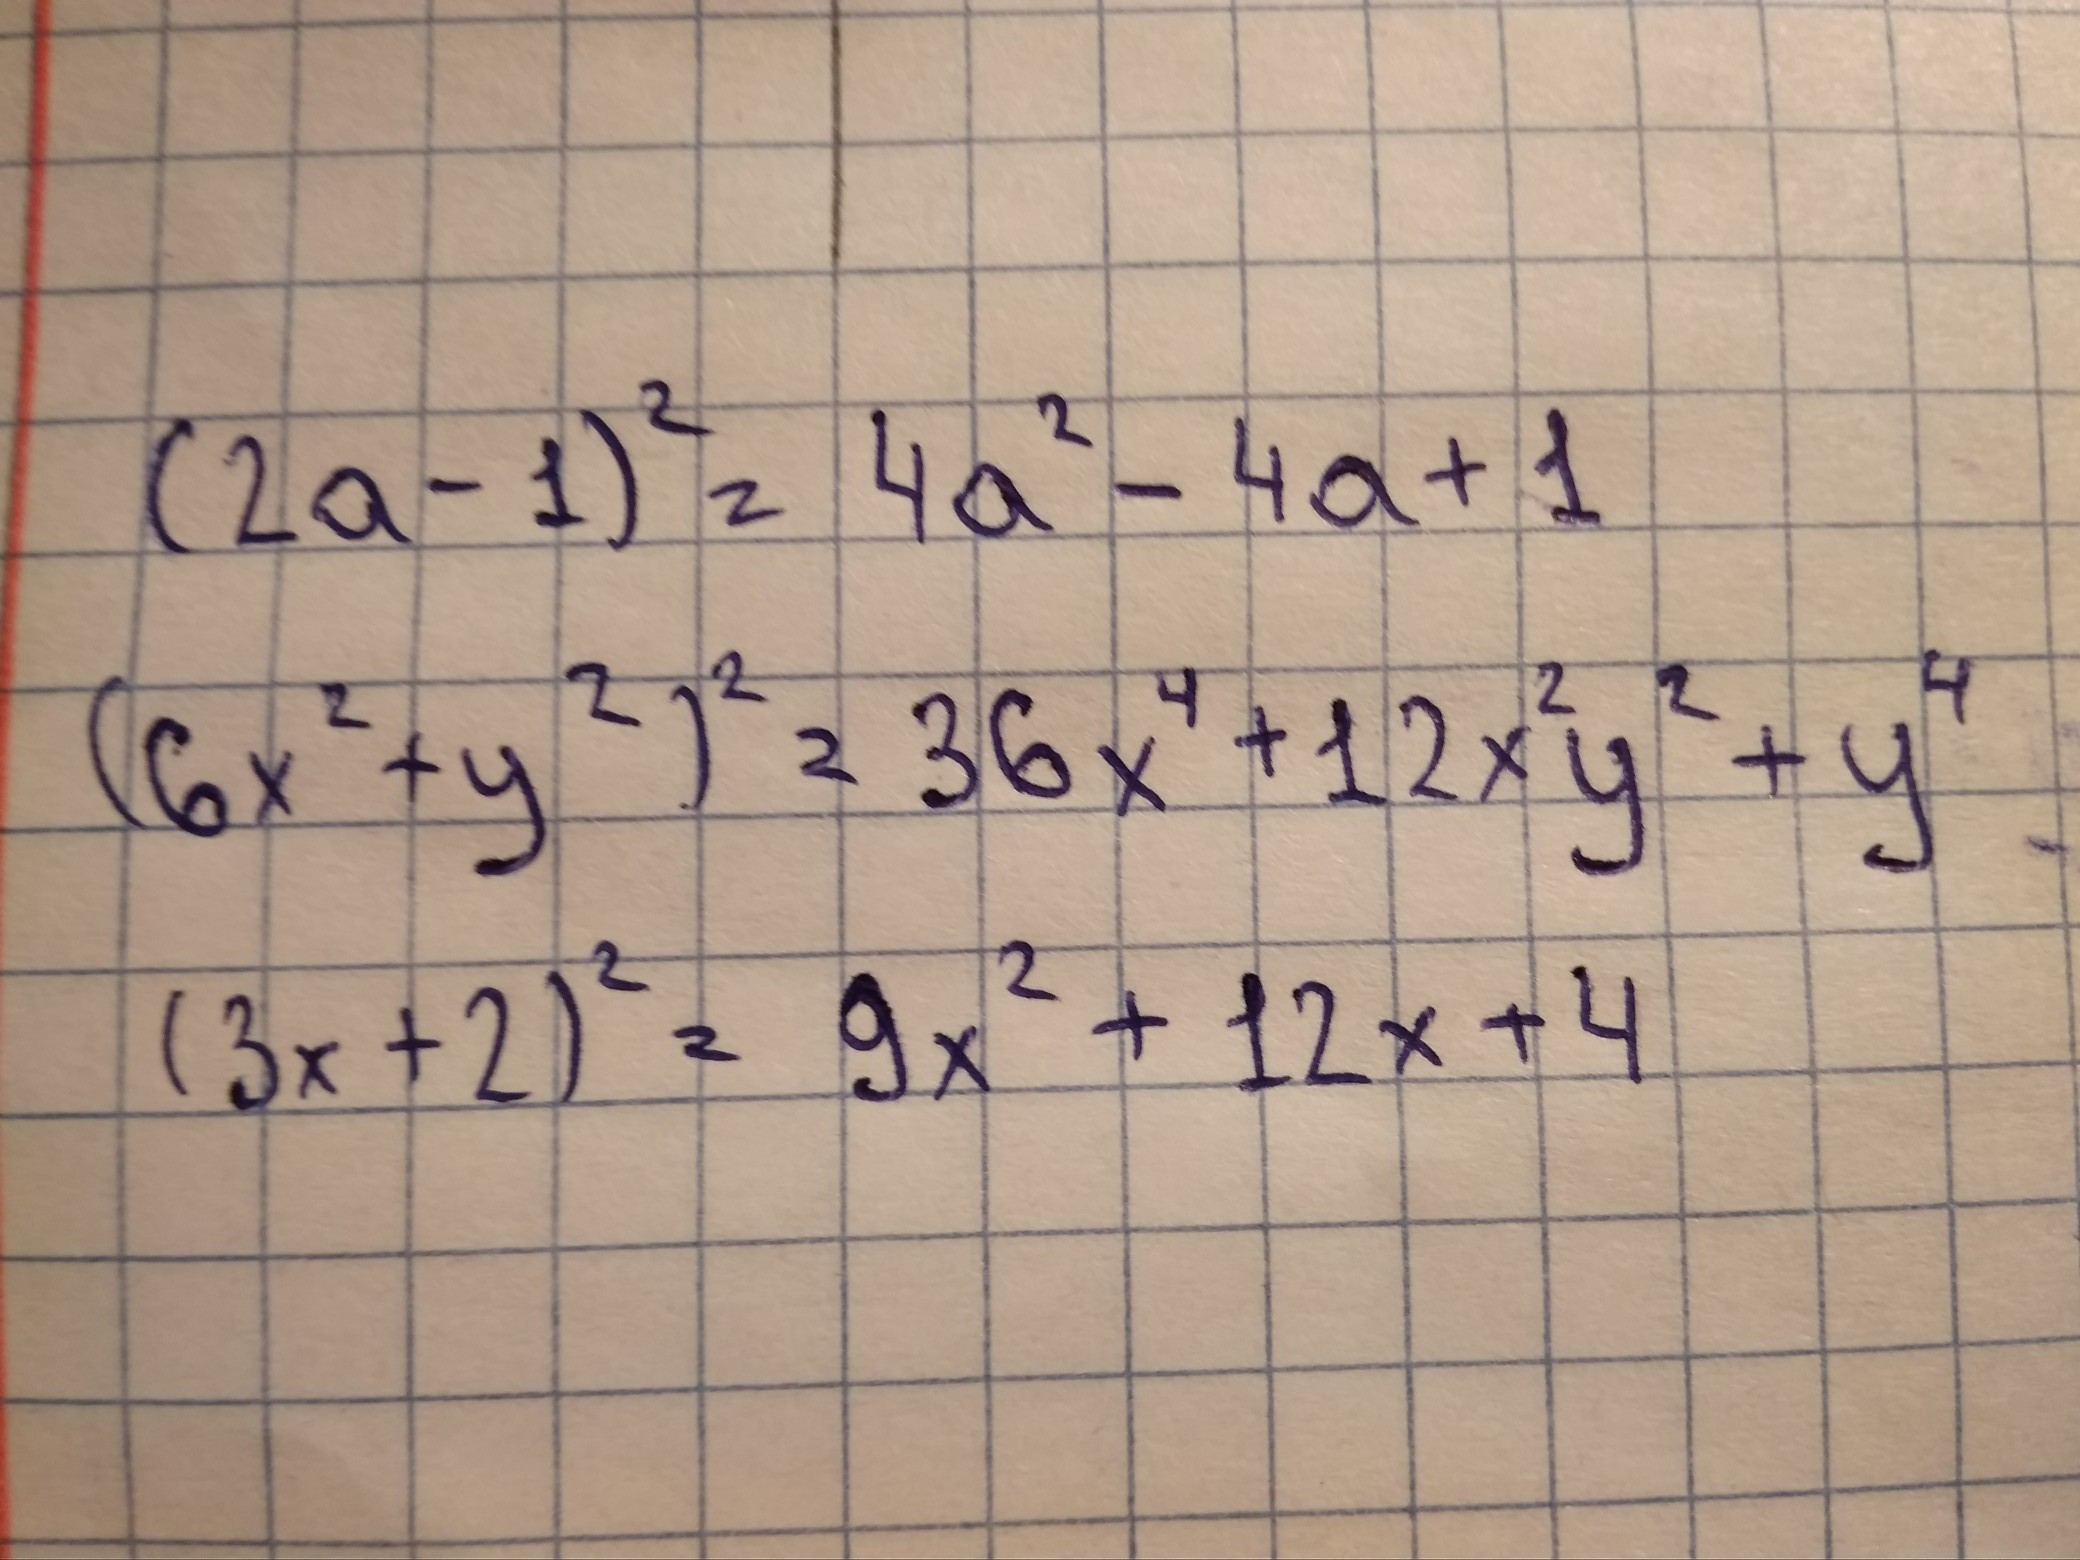 (2a-1)² = 4a² - 4a + 1
(6x² + y²)² = 36x⁴ + 12x²y² + y⁴
(3x + 2)² = 9x² + 12x + 4